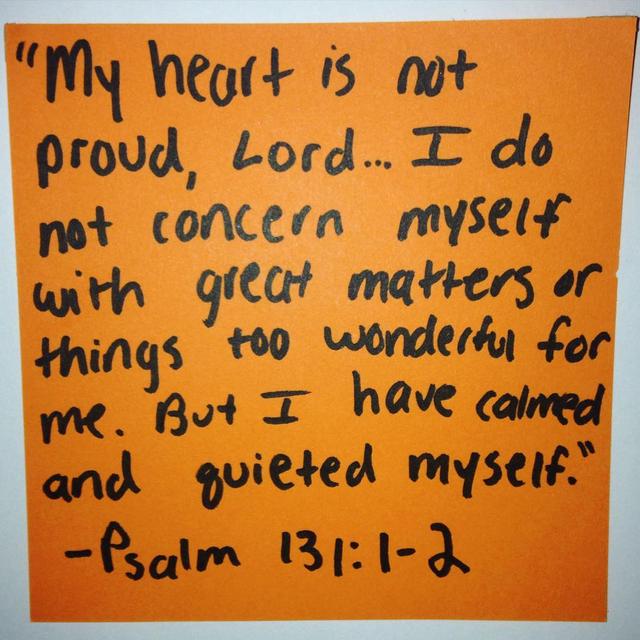 "My heart is not
proud, Lord... I do
not concern myself
with great matters or
things too wonderful for
me. But I have calmed
and quieted myself."
-Psalm 131:1-2